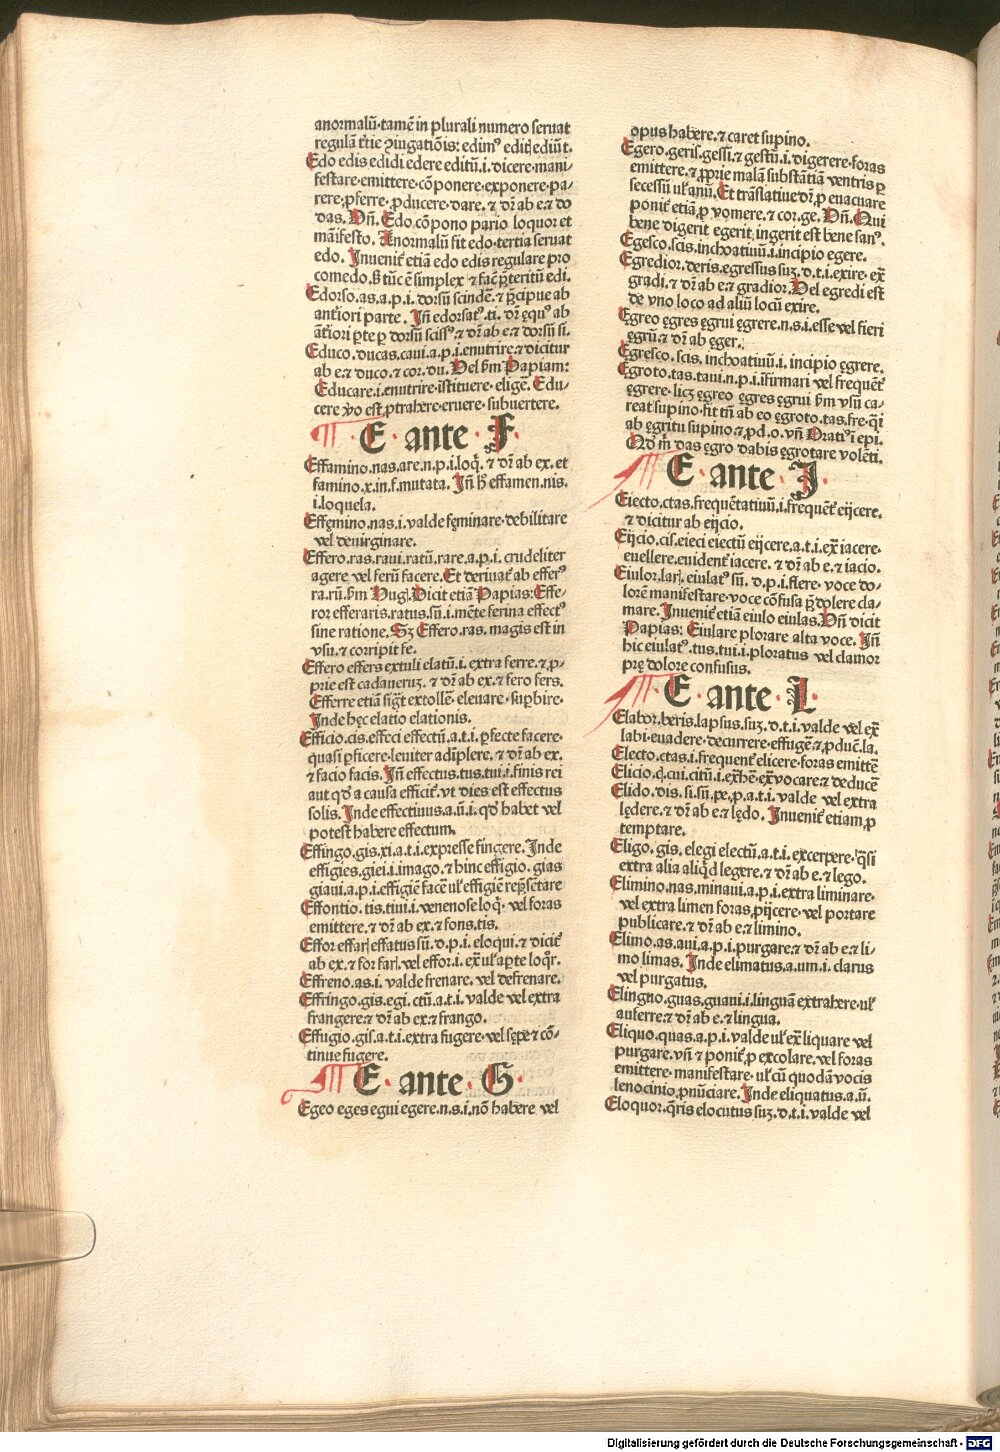 anormalū·tamē in plurali numero seruat
regulā t̄tie ꝯiugatiōis: edimꝰ edit⁝ ediūt.
Edo edis edidi edere editū.i.dicere·mani⸗
festare·emittere·cōponere·exponere·pa⸗
rere·ꝓferre·ꝓducere·dare. ⁊ dr̄ ab e.⁊ do
das. Vn̄. Edo cōpono pario loquor et
māifesto. Anormalū fit edo·tertia seruat
edo. Inuenit᷑ etiā edo edis regulare pro
comedo.
Edorso.as.a.p.i. dorsū scindē.⁊ p̄cipue ab
ant̄iori parte. In̄ edorsatꝰ.ti. dr̄
Educo.ducas.caui.a.p.i.enutrire·⁊ dicitur
ab e.⁊ duco.⁊ cor.du. Vel ẜm Papiam:
Educare.i.enutrire·istituere·eligē. Edu⸗
cere ꝟo est ꝓtrahere·eruere·subuertere.
E · ante · F·
Effamino.nas.are.n.p.i.loq̄. ⁊ dr̄ ab ex.et
famino.x.in.f.mutata. In̄ h̄ effamen.nis.
i.loquela.
Effęmino.nas.i.valde fęminare·debilitare
vel deuirginare.
Effero.ras.raui.ratū.rare.a.p.i. crudeliter
agere vel ferū facere. Et deriuat᷑ ab efferꝰ
ra.rū.ẜm Hug. Dicit etiā Papias: Effe⸗
ror efferaris.ratus.sū.i.mēte ferina effectꝰ
sine ratione. Sꝫ Effero.ras.magis est in
vsu.⁊ corripit fe.
Effero effers extuli elatū.i. extra ferre.⁊ ꝓ⸗
prie est cadaueruꝫ. ⁊ dr̄ ab ex.⁊ fero fers.
Efferre etiā sigt᷑ extollē· eleuare·supbire.
Inde hęc elatio elationis.
Efficio.cis.effeci effectū.a.t.i. ꝑfecte facere·
quasi ꝑficere·leuiter adīplere. ⁊ dr̄ ab ex.
⁊ facio facis. In̄ effectus.tus.tui.i.finis rei
aut qd̄ a causa efficit᷑.vt dies est effectus
solis. Inde effectiuus.a.ū.i. qd̄ habet vel
potest habere effectum.
Effingo.gis.xi.a.t.i.expresse fingere. Inde
effigies.giei.i.imago.⁊ hinc effigio. gias
giaui.a.p.i.effigiē facē ul᷑ effigiē repn̄tare
Effontio.tis.tiui.i.venenose loq̄· vel foras
emittere.⁊ dr̄ ab ex.⁊ fons.tis.
Effor effar⁝ effatus sū.d.p.i. eloqui.⁊ dicit᷑
ab ex.⁊ for far⁝.vel effor.i. ex̄ ul᷑ aꝑte loqr̄.
Effreno.as.i. valde frenare. vel defrenare.
Effringo.gis.egi.ctū.a.t.i. valde vel extra
frangere.⁊ dr̄ ab ex.⁊ frango.
Effugio.gis.a.t.i.extra fugere·vel sępe ⁊ cō⸗
tinue fugere.
E · ante · G·
Egeo eges egui egere.n.s.i.nō habere vel
opus habere.⁊ caret supino.
Egero.geris.gessi.⁊ gestū.i.digerere·foras
emittere.⁊ ꝓprie malā substātiā ventris ꝑ
secessū ul᷑ anū. Et trāslatiue dr̄ ꝓ euacuare
ponit᷑ etiā ꝓ vomere.⁊ cor.ge. Vn̄. Qui
bene digerit egerit·ingerit est bene sanꝰ.
Egesco.scis.inchoatiuū.i.incipio egere.
Egredior.deris.egressus suꝫ.d.t.i.exire. ex̄
gradi.⁊ dr̄ ab e.⁊ gradior. Vel egredi est
de vno loco ad aliū locū exire.
Egreo ęgres ęgrui ęgrere.n.s.i.esse vel fieri
ęgrū.⁊ dr̄ ab ęger.
Egresco.scis.inchoatiuū.i. incipio ęgrere.
Egroto.tas.taui.n.p.i.ifirmari vel frequēt᷑
ęgrere·licꝫ ęgreo ęgres ęgrui ẜm vsū ca⸗
reat supino·fit tn̄ ab eo ęgroto.tas.fre.q̄i
ab ęgritu supino.⁊ ꝓd.o.vn̄ Oratiꝰ i epi.
Qd̄ m̄ das ęgro dabis ęgrotare volēti.
E · ante · I·
Eiecto.ctas.frequētatiuū.i.frequēt᷑ eijcere.
⁊ dicitur ab eijcio.
Eijcio.cis.eieci eiectū eijcere.a.t.i.ex̄ iacere·
euellere·euident᷑ iacere. ⁊ dr̄ ab e.⁊ iacio.
Eiulor.lar⁝.eiulatꝰ sū. d.p.i.flere· voce do⸗
lorē manifestare·voce cōfusa p̄ dolere cla⸗
mare. Inuenit᷑ etiā eiulo eiulas. Vn̄ dicit
Papias: Eiulare plorare alta voce. In̄
hic eiulatꝰ.tus.tui.i.ploratus vel clamor
prę dolore confusus.
E · ante · L·
Elabor.beris.lapsus.suꝫ.d.t.i. valde vel ex̄
labi·euadere·decurrere·effugē.⁊ ꝓduē.la.
Electo.ctas.i.frequent᷑ elicere·foras emittē
Elicio.q̄.cui.citū.i.ext̄hē·ex̄ vocare.⁊ deducē
Elido.dis.si.sū.pe.ꝓ.a.t.i. valde vel extra
lędere.⁊ dr̄ ab e.⁊ lędo. Inuenit᷑ etiam ꝓ
temptare.
Eligo.gis.elegi electū.a.t.i. excerpere·q̄si
extra alia aliqd̄ legere.⁊ dr̄ ab e.⁊ lego.
Elimino.nas.minaui.a.p.i.extra liminare·
vel extra limen foras ꝓijcere·vel portare
publicare.⁊ dr̄ ab e.⁊ limino.
Elimo.as.aui.a.p.i.purgare.⁊ dr̄ ab e.⁊ li⸗
mo limas. Inde elimatus.a.um.i. clarus
vel purgatus.
Elingno.guas.guaui.i.linguā extrahere·ul᷑
auferre.⁊ dr̄ ab e.⁊ lingua.
Eliquo.quas.a.p.i.valde ul᷑ ex̄ liquare vel
purgare.vn̄ ⁊ ponit᷑ ꝓ excolare.vel foras
emittere·manifestare·ul᷑ cū quodā vocis
lenocinio ꝓnūciare. Inde eliquatus.a.ū.
Eloquor.q̄ris elocutus suꝫ.d.t.i.valde vel
Digitalisierung gefördert durch die Deutsche Forschungsgemeinschaft - DFG